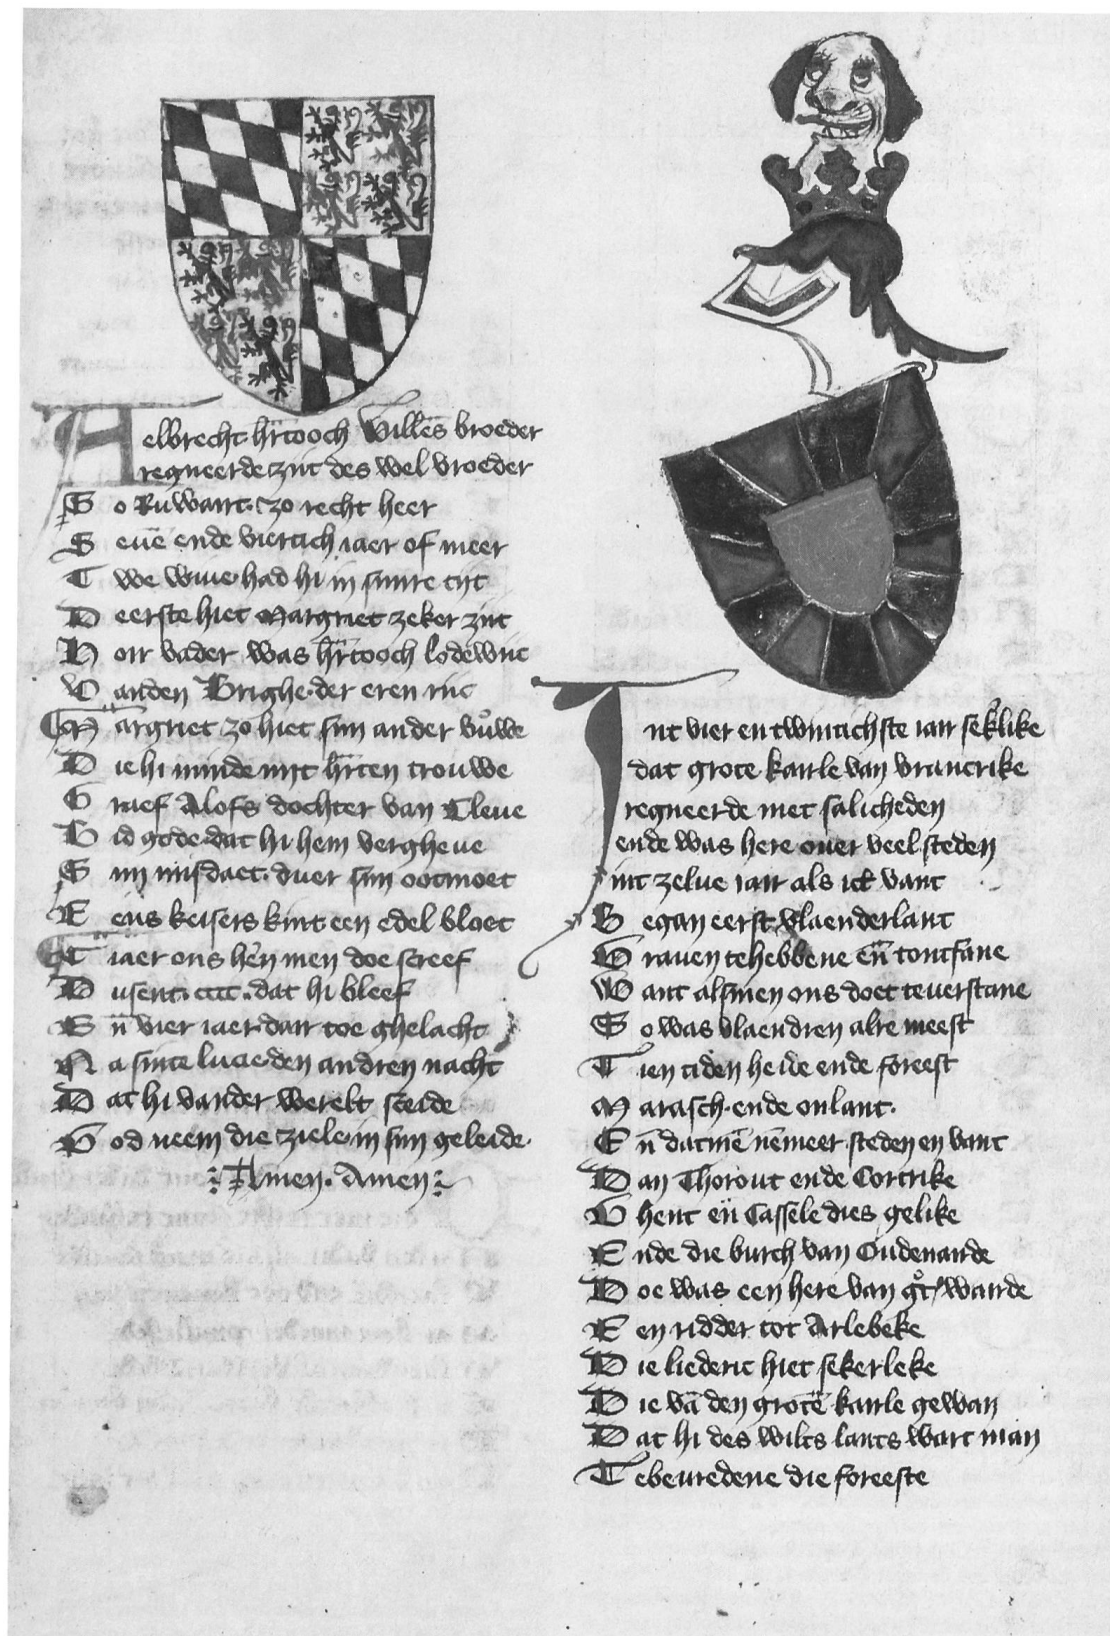 Aelbrecht hrtooch Willēs broeder
regneerde zint des wel vroeder
So Ruwart zo recht heer
Seuē ende viertich iaer of meer
Twe wiue had hi in sinre tijt
Deerste hiet Margriet zeker zijt
Hoir vader was hrtooch lodewijc
Vanden Brighe der eren rijc
Margriet zo hiet sijn ander vuͦwe
Die hi minde mijt hrten trouwe
Graef Alofs dochter van Cleue
Bid gode dat hi hem vergheue
Sijn misdaet duer sijn ootmoet
Eens keisers kint een edel bloet
Tiaer ons hēn men doe screef
Dusent cccc dat hi bleef
Eñ vier iaer dair toe ghelacht
Na sinte lucie den andren nacht
Dat hi vander werelt sceide
God neem die ziele in sijn geleide
Amen Amen
Int vier en twintichste iair sekerlike
dat grote kairle van vrancrike
regneerde met salicheden
ende was here ouer veel steden
int zelue iair als ick vant
Began eerst vlaenderlant
Grauen tehebbene eñ tontfane
Want alsmen ons doet teuerstane
So was vlaendren alre meest
Tien tiden heide ende foreest
Marasch ende onlant
Eñ datmē nēmeer steden en vant
Dan Thorout ende Cortrike
Ghent eñ Cassele dies gelike
Ende die burch van Oudenarde
Doe was een here van gͦter warde
Een ridder tot Arlebeke
Die liederic hiet sekerleke
Die vā den grotē kairle gewan
Dat hi des wilts lants wart man
Tebeuredene die foreeste